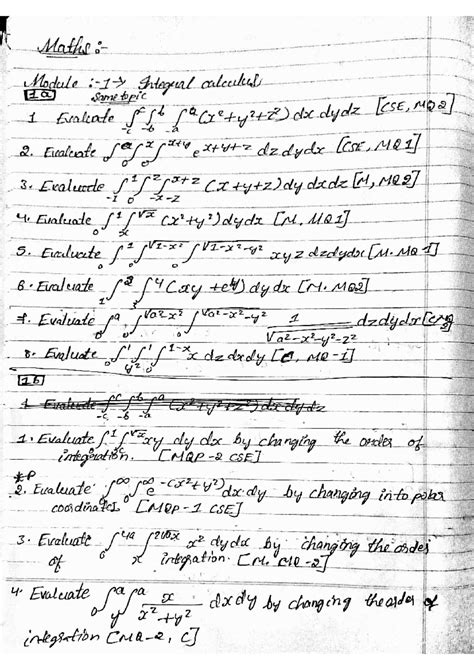 Maths :-
Module :-1 → Integral calculus
1a Same topic
1 Evaluate ∫_{-c}^{c} ∫_{-b}^{b} ∫_{-a}^{a} (x²+y²+z²) dx dy dz [CSE, MQ2]
2. Evaluate ∫_0^a ∫_0^x ∫_0^{x+y} e^{x+y+z} dz dy dx [CSE, MQ1]
3. Evaluate ∫_{-1}^1 ∫_0^z ∫_{x-z}^{x+z} (x+y+z) dy dx dz [M, MQ2]
4. Evaluate ∫_0^1 ∫_x^{√x} (x²+y²) dy dx [M. MQ1]
5. Evaluate ∫_0^1 ∫_0^{√1-x²} ∫_0^{√1-x²-y²} xyz dz dy dx [M. MQ 1]
6. Evaluate ∫_1^2 ∫_3^4 (xy + e^y) dy dx [M. MQ2]
7. Evaluate ∫_0^a ∫_0^{√a²-x²} ∫_0^{√a²-x²-y²} 1/√a²-x²-y²-z² dz dy dx
8. Evaluate ∫_0^1 ∫_{y²}^1 ∫_0^{1-x} x dz dx dy [C, MQ-1]
1b
1 Evaluate ∫_{-c}^{c} ∫_{-b}^{b} ∫_{-a}^{a} (x²+y²+z²) dx dy dz
1. Evaluate ∫_0^1 ∫_x^{√x} xy dy dx by changing the order of
integration. [MQP-2 CSE]
*P
2. Evaluate ∫_0^∞ ∫_0^∞ e^{-(x²+y²)} dx dy by changing into polar
coordinates [MQP-1 CSE]
3. Evaluate ∫_0^{4a} ∫ x² dy dx by changing the order
of integration. [M. MQ-2]
4. Evaluate ∫_0^a ∫_y^a x/x²+y² dx dy by changing the order of
integration [MQ-2, C]